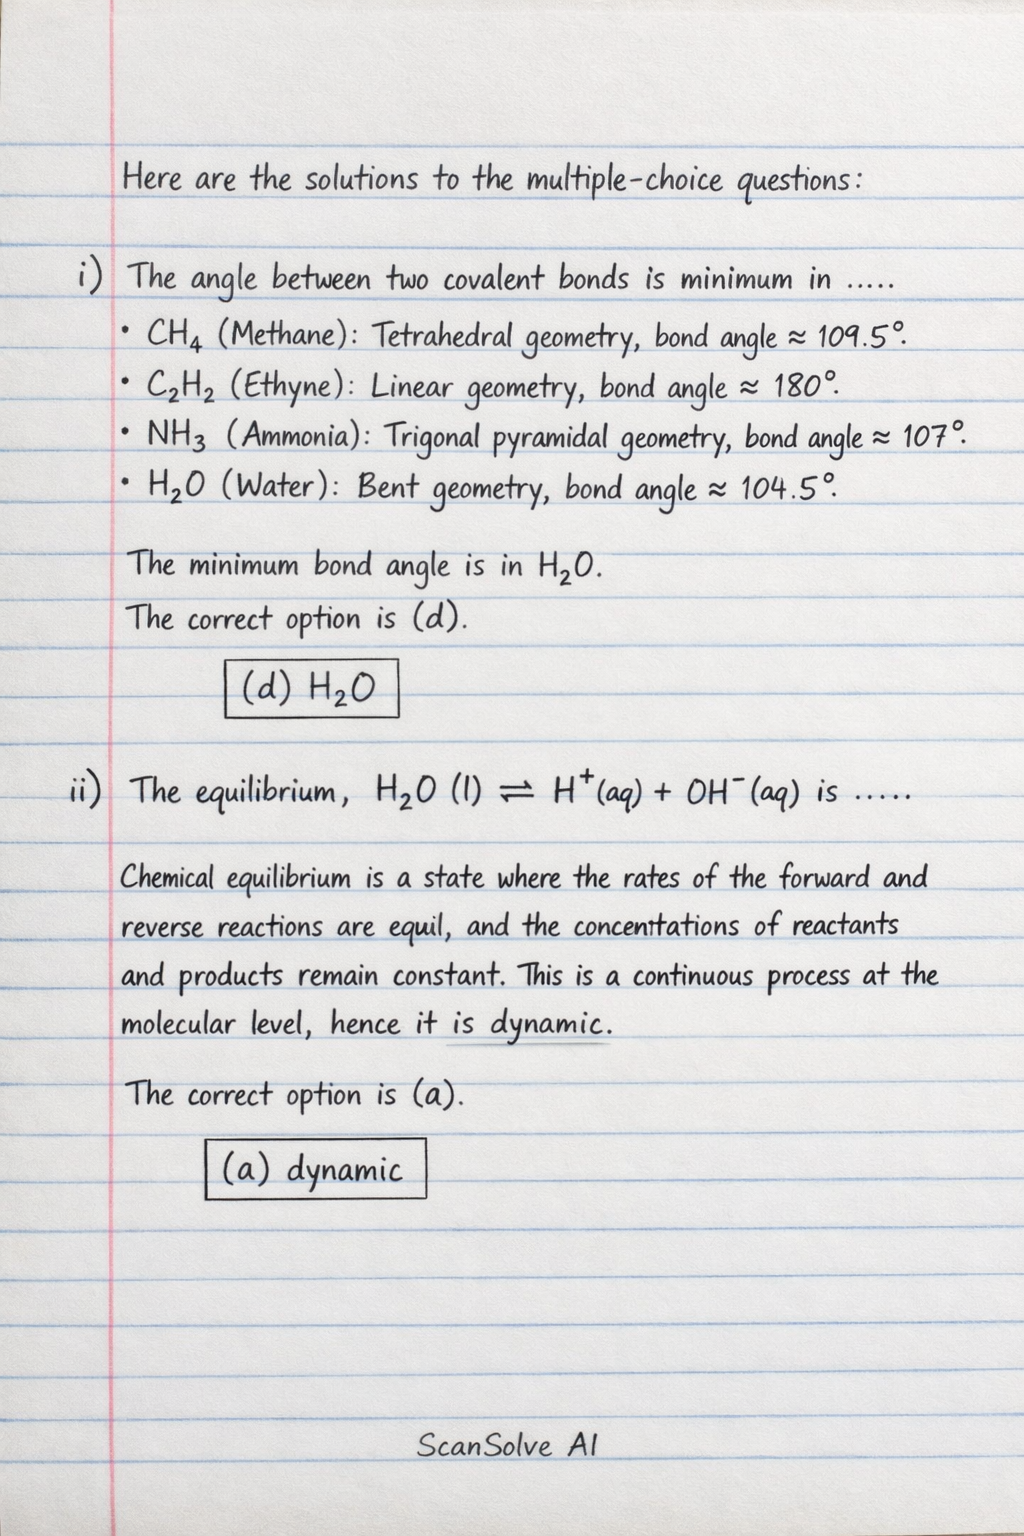 Here are the solutions to the multiple-choice questions:
i) The angle between two covalent bonds is minimum in .....
• CH₄ (Methane): Tetrahedral geometry, bond angle ≈ 109.5°.
• C₂H₂ (Ethyne): Linear geometry, bond angle ≈ 180°.
• NH₃ (Ammonia): Trigonal pyramidal geometry, bond angle ≈ 107°.
• H₂O (Water): Bent geometry, bond angle ≈ 104.5°.
The minimum bond angle is in H₂O.
The correct option is (d).
(d) H₂O
ii) The equilibrium, H₂O (l) ⇌ H⁺(aq) + OH⁻(aq) is .....
Chemical equilibrium is a state where the rates of the forward and
reverse reactions are equil, and the concentrations of reactants
and products remain constant. This is a continuous process at the
molecular level, hence it is dynamic.
The correct option is (a).
(a) dynamic
ScanSolve AI